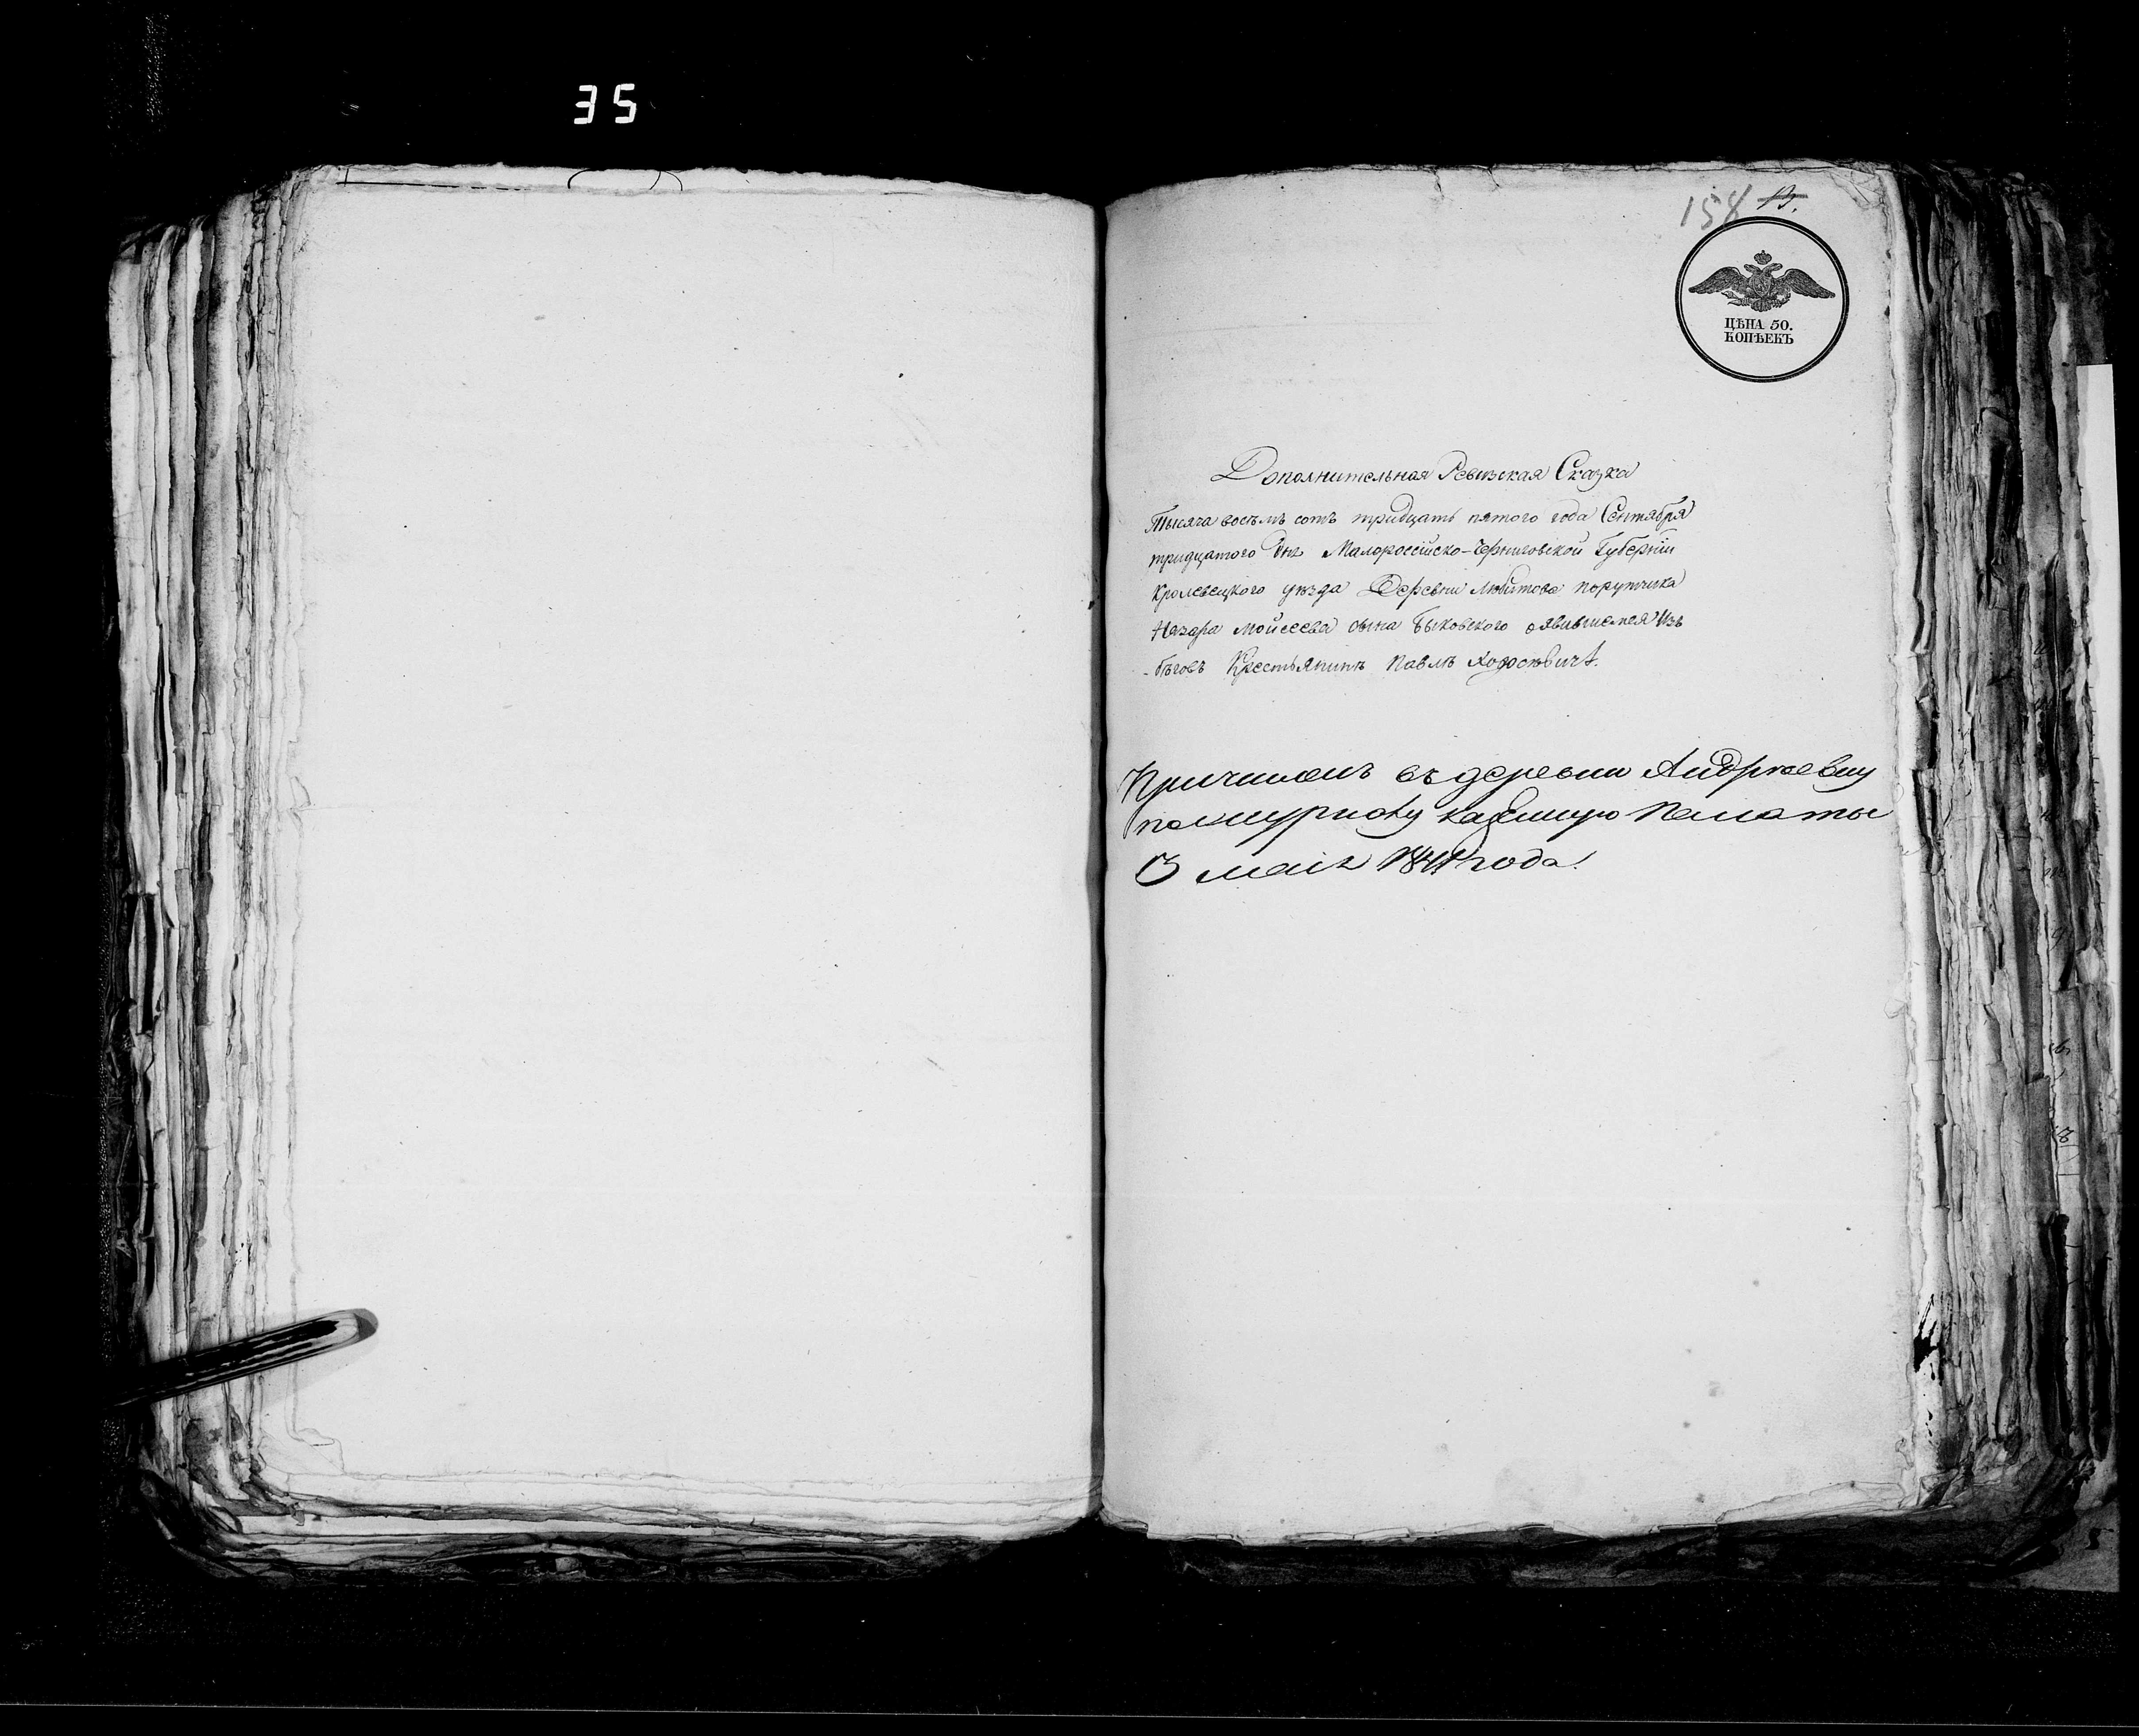 35
158 13.
ЦѢНА 50.
КОПѢЕКЪ
Дополнительная Ревизская Сказка
Тысяча восемь сотъ тридцать пятого года Сентября
тридцатого дня Малороссійско-Черниговской Губерніи
Кролевецкого уѣзда Деревни Любитова порутчика
Назара Моисеева сына Быковского о явившемся изъ
бѣговъ Крестьянинѣ Павлѣ
Причисленъ въ деревни Андреевну
по журналу казенную Палаты
3 маія 1841 года.